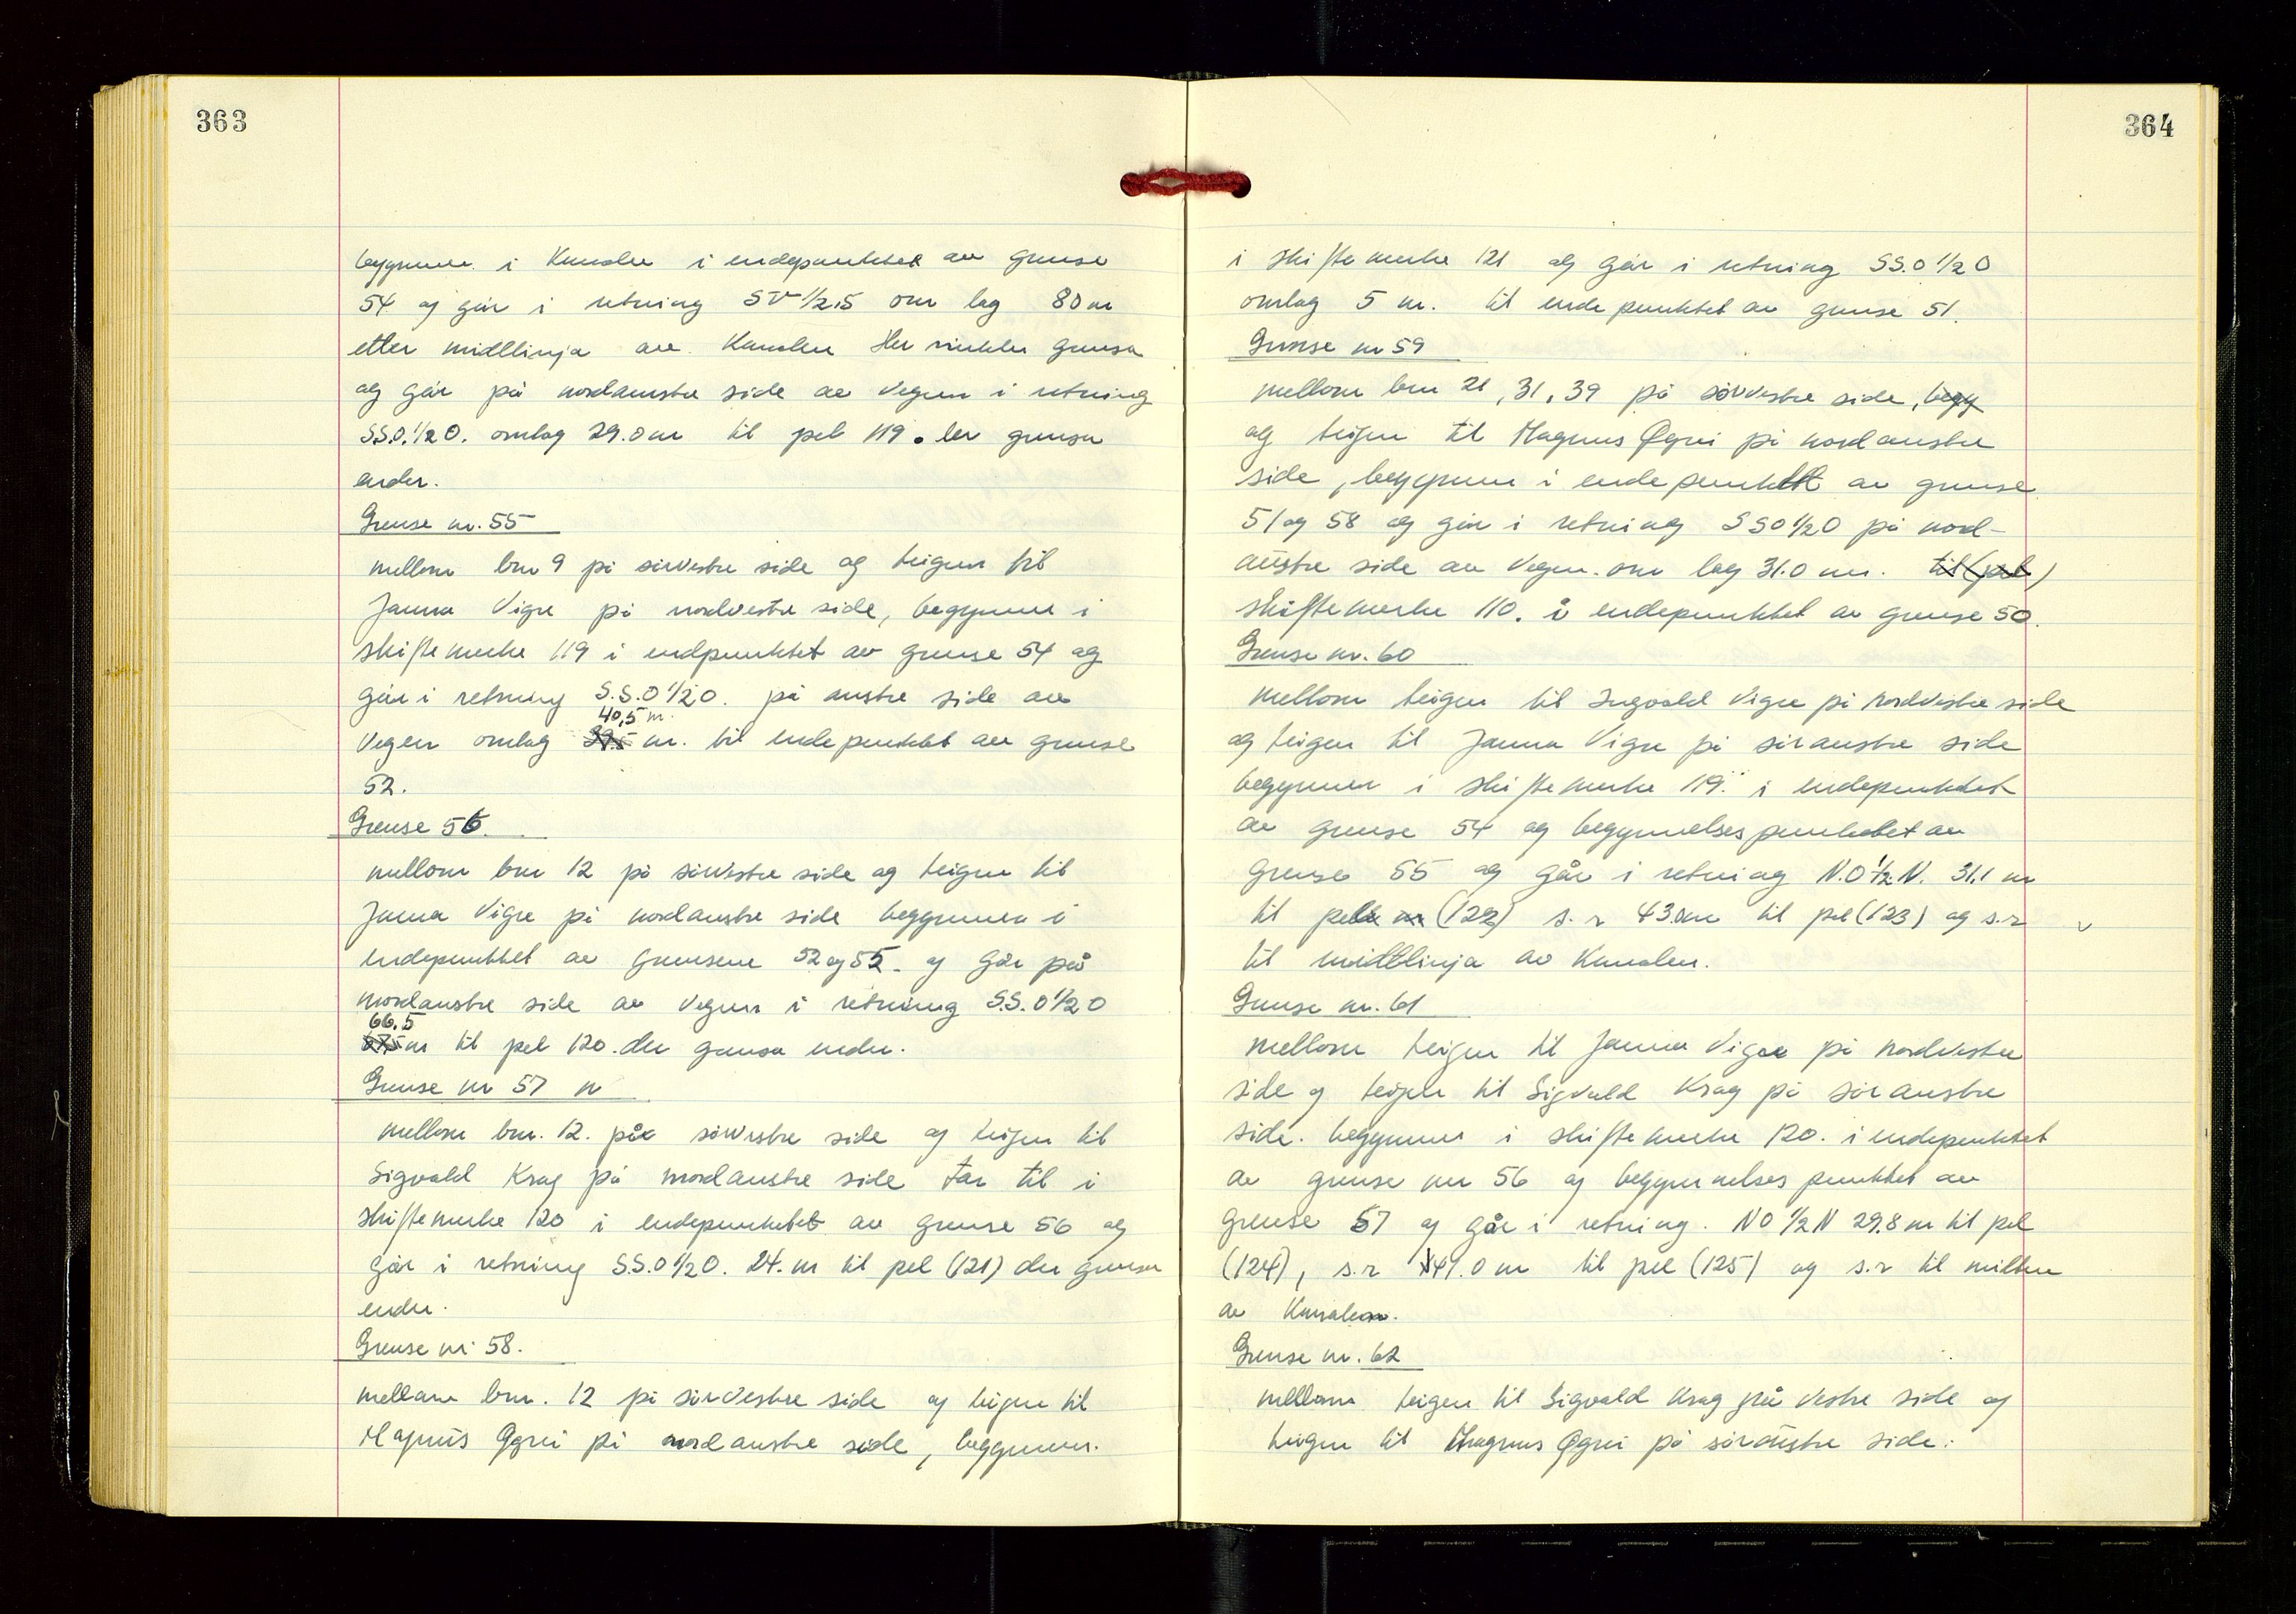 363
begynner i Kanalen i endepunktet av grense
54 og går i retning SV 1/2 S om lag 80 m
etter midtlinja av Kanalen Her vinkler grensa
og går på nordaustre side av vegen i retning
S.S.O. 1/2 O. omlag 29.0 m til pel 119. der grensa
ender.
Grense nr. 55
mellom bnr 9 på sørvestre side og teigen til
Janna Vigre på nordvestre side, begynner i
skiftemerke 119 i endpunktet av grense 54 og
går i retning S.S.O 1/2 O. på austre side av
40,5 m.
Vegen omlag 39.5 m. til endepunktet av grense
52.
Grense 56.
mellom bnr 12 på sørvestre side og teigen til
Janna Vigre på nordaustre side begynner i
endepunktet av grensene 52 og 55. og går på
nordaustre side av vegen i retning S.S.O 1/2 O
66.5
67.5 m til pel 120. der grensa ender.
Grense nr 57 n
mellom bnr. 12. på sørvestre side og teigen til
Sigvald Krag på nordaustre side tar til i
skiftemerke 120 i endepunktet av grense 56 og
går i retning S.S.O 1/2 O. 24. m til pel (121) der grensa
ender.
Grense nr 58.
mellom bnr. 12 på sørvestre side og teigen til
Magnus Øgrei på nordaustre side, begynner.
364
i skiftemerke 121 og går i retning SS.O 1/2 O
omlag 5 m. til endepunktet av grense 51.
Grense nr 59
mellom bnr 21, 31, 39 på sørvestre side, begy
og teigen til Magnus Øgrei på nordaustre
side, begynner i endepunktet av grense
51 og 58 og går i retning SSO 1/2 O på nord-
austre side av Vegen. om lag 31.0 m. til (pel)
skiftemerke 110. i endepunktet av grense 50.
Grense nr. 60
mellom teigen til Ingvald Vigre på nordvestre side
og teigen til Janna Vigre på søraustre side
begynner i skiftemerke 119. i endepunktet
av grense 54 og begynnelsespunktet av
grense 55 og går i retning N.O 1/2 N. 31,1 m
til pel nr (122) s. r 43.0m til pel (123) og s.r
til midtlinja av Kanalen.
Grense nr. 61
mellom teigen til Janna Vigre på nordvestre
side og teigen til Sigvald Krag på søraustre
side. begynner i skiftemerke 120. i endepunktet
av grense nr 56 og begynnelsespunktet av
grense 57 og går i retning. NO 1/2 N 29.8 m til pel
(124), s.r 41.0 m til pel (125) og s.r til midten
av Kanalen.
Grense nr. 62
mellom teigen til Sigvald Krag på vestre side og
teigen til Magnus Øgrei på søraustre side.